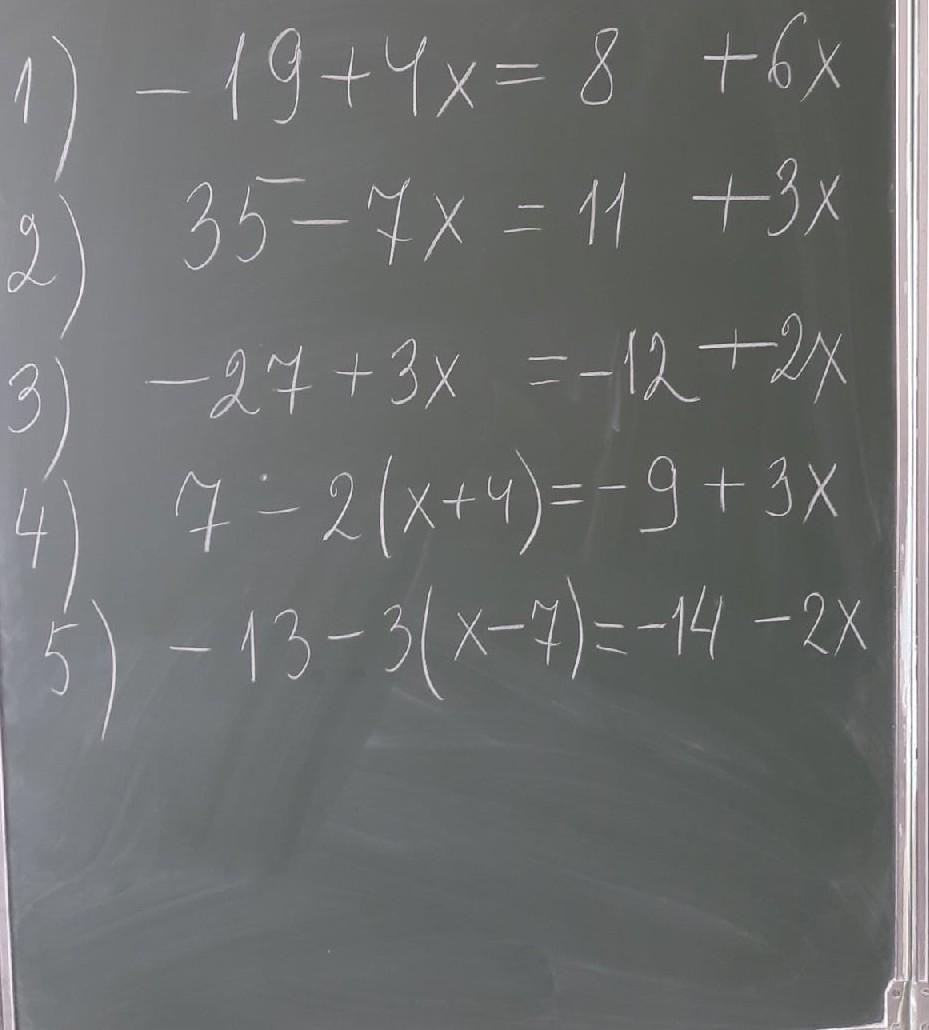 1) -19+4x= 8 +6x
2) 35-7x = 11 +3x
3) -27+3x =-12+2x
4) 7-2(x+4)=-9+3x
5) -13-3(x-7)=-14-2x